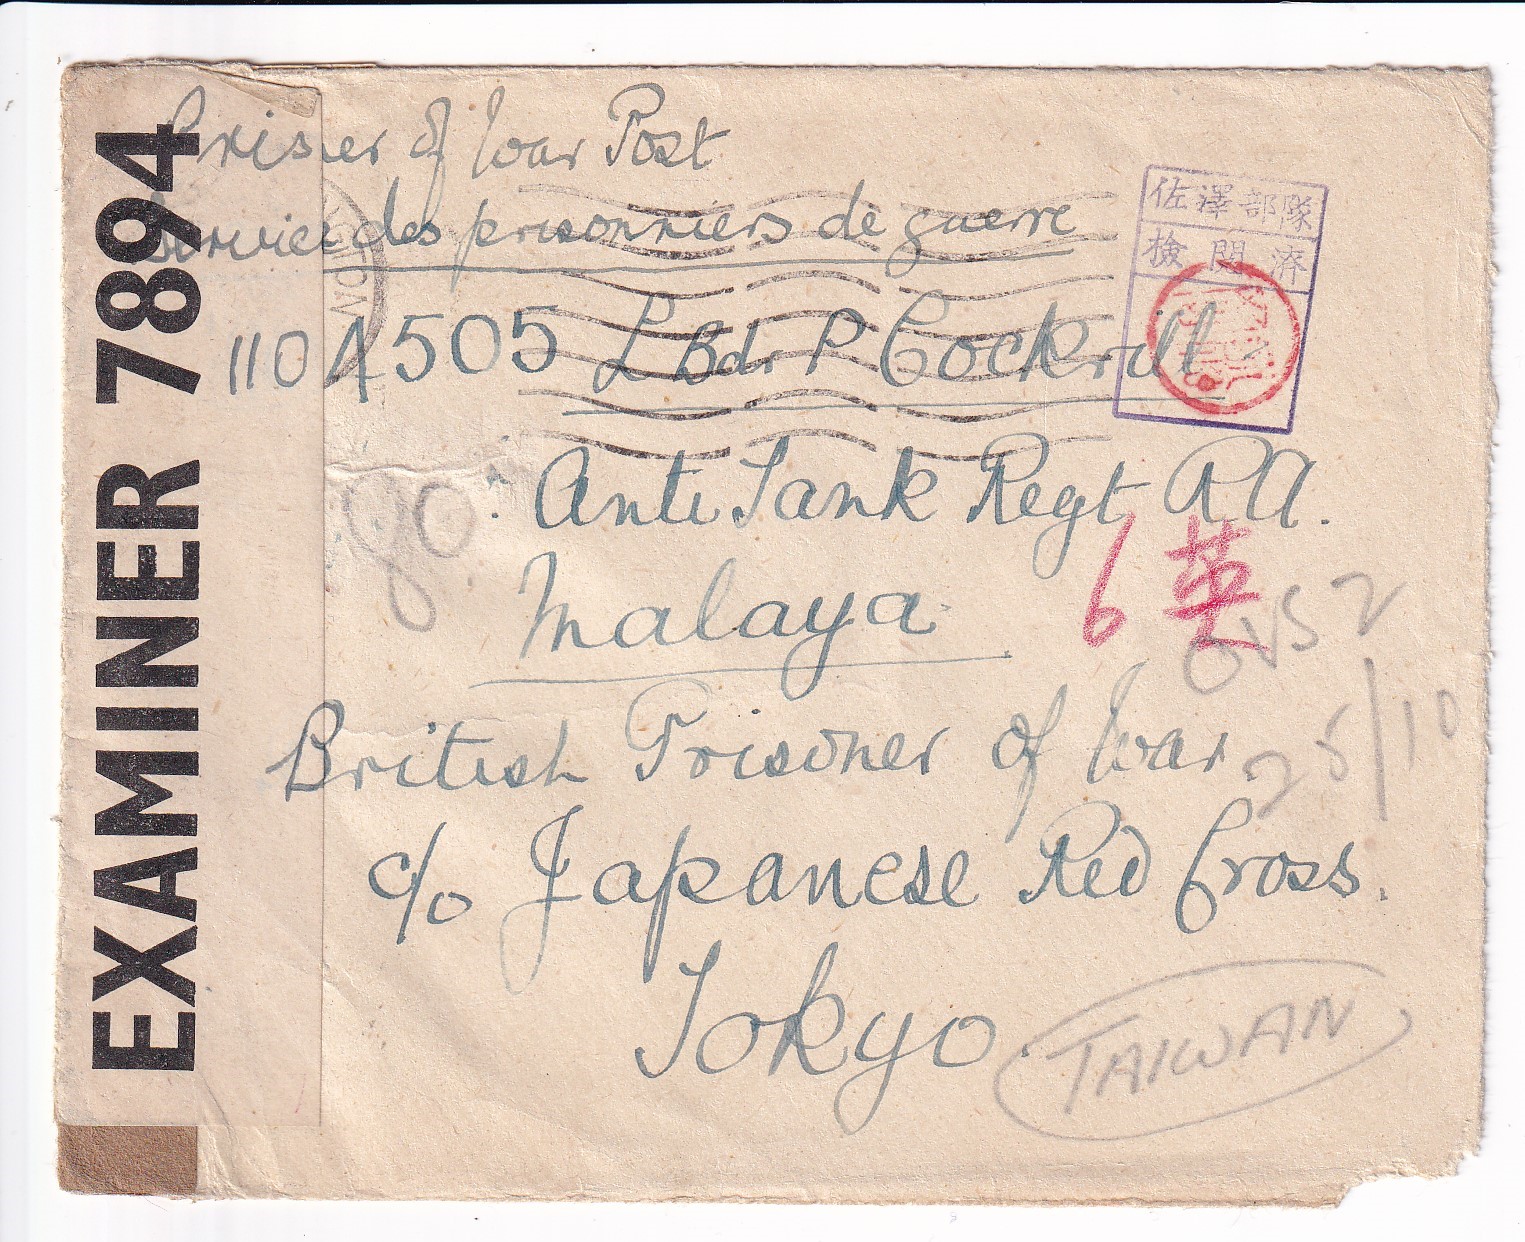 EXAMINER 7894
Prisoner of War Post
Service des prisonniers de guerre
佐澤部隊
檢閲濟
1104505 L Bdr P Cockrill
80
Anti Tank Regt RA.
Malaya
6 英
OVS 2
25/10
British Prisoner of War
c/o Japanese Red Cross.
Tokyo.
TAIWAN